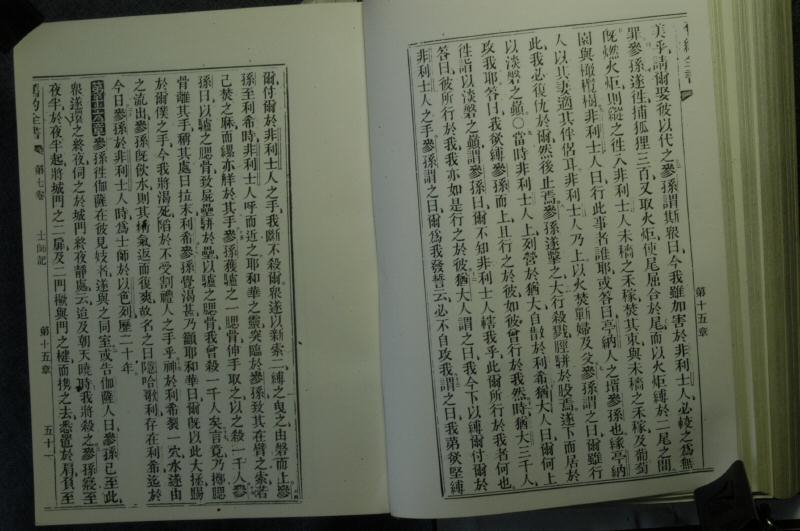 舊約全書
第十五章
美乎請爾娶彼以代之參孫謂斯眾曰今我雖加害於非利士人必較之爲無
罪參孫遂徃捕狐狸三百又取火炬使尾屈合於尾而以火炬縛於二尾之間
旣燃火炬則縱之徃入非利士人未穡之禾稼焚其束與未穡之禾稼及葡萄
園與橄欖樹非利士人曰行此事者誰耶或答曰亭納人之壻參孫也緣亭納
人以其妻適其伴侶耳非利士人乃上以火焚斯婦及父參孫謂之曰爾雖行
此我必復仇於爾然後止焉參孫遂擊之大行殺戮脛骿於股焉遂下而居於
以淡磐之巓〇當時非利士人上列營於猶大自散於利希猶大人曰爾何上
攻我耶答曰我欲縛參孫而上且行之於彼如彼曾行於我然時猶大三千人
徃詣以淡磐之巓謂參孫曰爾不知非利士人轄我乎此爾所行於我者何也
答曰彼所行於我我亦如是行之於彼猶大人謂之曰我今下以縛爾付爾於
非利士人之手參孫謂之曰爾爲我發誓云必不自攻我謂之曰我第欲堅縛
爾付爾於非利士人之手我斷不殺爾眾遂以新索二縛之曳之由磐而上參
孫至利希時非利士人呼而近之耶和華之靈突臨於參孫致其在臂之索若
己焚之蔴而縲亦解於其手參孫獲驢之一腮骨伸手取之以之殺一千人參
孫曰以驢之腮骨致屍壘骿於壘以驢之腮骨我曾殺一千人矣言竟乃擲腮
骨離其手稱其處曰拉末利希參孫覺渴甚乃籲耶和華曰爾旣以此大拯賜
於爾僕之手今我將渴死陷於不受割禮人之手乎神於利希裂一穴水遂由
之流出參孫旣飲水則其氣返而復爽故名之曰隱哈歌利存在利希迄於
今日參孫於非利士人時爲士師於以色列歷二十年
第十六章參孫徃伽薩在彼見妓者遂與之同室或告伽薩人曰參孫已至此
眾遂環之終夜伺之於城門終夜靜處云迨及朝天曉時我將殺之參孫寢至
夜半於夜半起將城門之二扉及二門橛與門之楗而攜之去悉置於肩負至
舊約全書
第七卷
士師記
第十五章
五十一